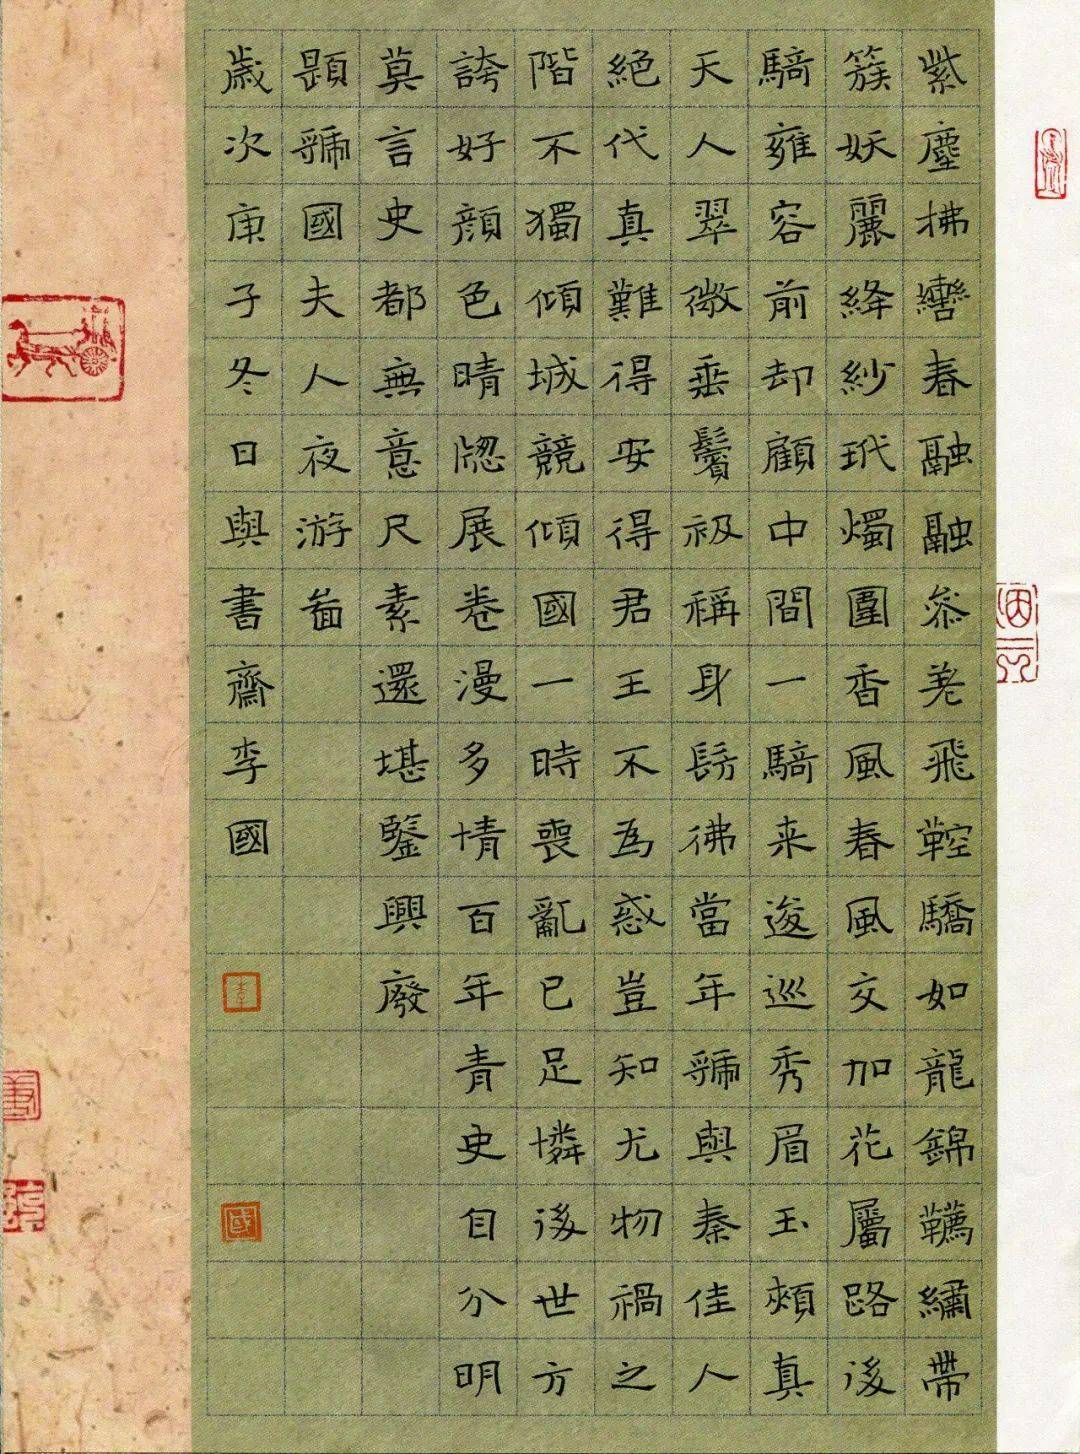 紫塵拂轡春融融參差飛鞚驕如龍錦韉繡帶
簇妖麗絳紗玳燭圍香風春風交加花屬路後
騎雍容前却顧中間一騎来逡巡秀眉玉頰真
天人翠微垂鬢衱稱身髣彿當年虢與秦佳人
絕代真難得安得君王不為惑豈知尤物禍之
階不獨傾城競傾國一時喪亂已足憐後世方
誇好顏色晴牕展卷漫多情百年青史自分明
莫言史都無意尺素還堪鑒興廢
題虢國夫人夜游啚
歲次庚子冬日與書齋李國
李
國